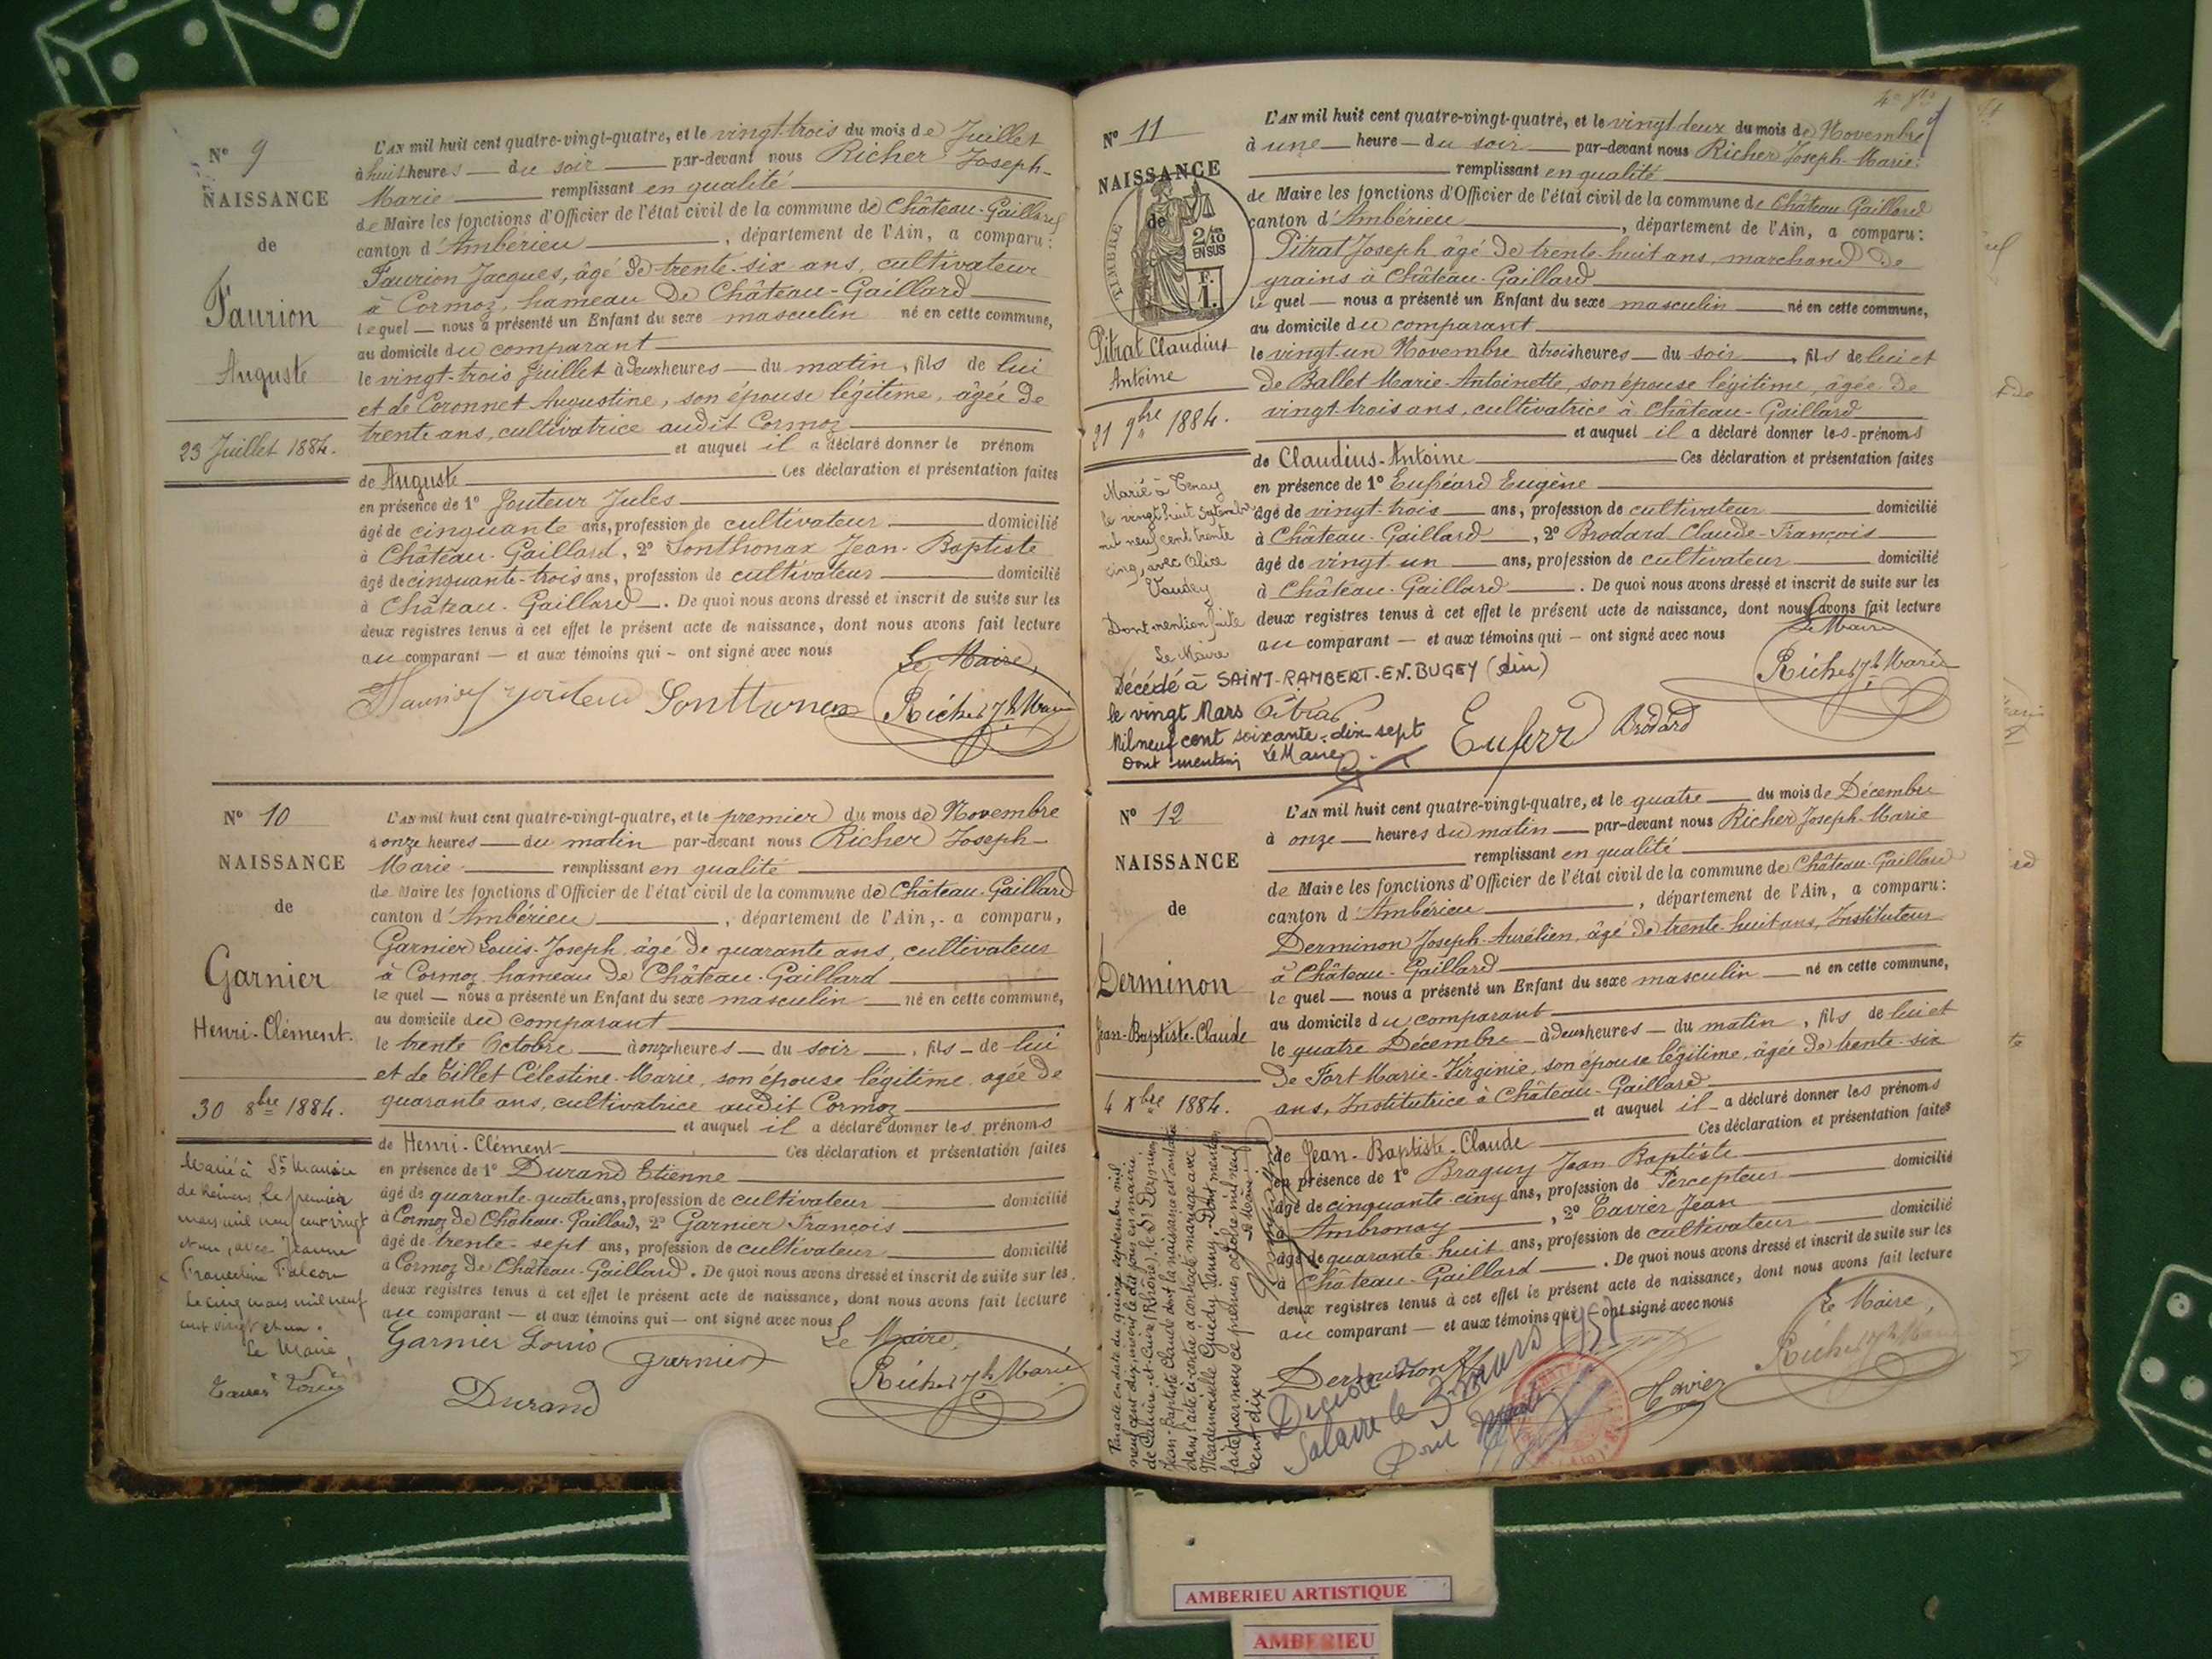 N° 9
NAISSANCE
de
Faurion
Auguste
23 Juillet 1884.
L'AN mil huit cent quatre-vingt-quatre, et le vingt-trois du mois de Juillet
à huit heures — du soir — par-devant nous Richer Joseph-
Marie — remplissant en qualité
de Maire les fonctions d'Officier de l'état civil de la commune de Château-Gaillard
canton d'Ambérieu —, département de l'Ain, a comparu:
Faurion Jacques, âgé de trente-six ans, cultivateur
à Cormoz, hameau de Château-Gaillard
lequel — nous a présenté un Enfant du sexe masculin né en cette commune,
au domicile du comparant
le vingt-trois Juillet à deux heures — du matin, fils de lui
et de Coronnet Augustine, son épouse légitime, âgée de
trente ans, cultivatrice audit Cormoz
et auquel il a déclaré donner le prénom
de Auguste — Ces déclaration et présentation faites
en présence de 1° Jouteur Jules
âgé de cinquante ans, profession de cultivateur — domicilié
à Château-Gaillard, 2° Sonthonax Jean-Baptiste
âgé de cinquante-trois ans, profession de cultivateur — domicilié
à Château-Gaillard —. De quoi nous avons dressé et inscrit de suite sur les
deux registres tenus à cet effet le présent acte de naissance, dont nous avons fait lecture
au comparant — et aux témoins qui — ont signé avec nous
Le Maire,
Sonthonax Richer Jh Marie
N° 10
NAISSANCE
de
Garnier
Henri-Clément.
30 8bre 1884.
Marié à St Maurice
de Rémens le premier
mars mil neuf cent vingt
et un, avec Jeanne
Franceline Falcon
Le cinq mars mil neuf
cent vingt et un.
Le Maire,
L'AN mil huit cent quatre-vingt-quatre, et le premier du mois de Novembre
à onze heures — du matin par-devant nous Richer Joseph-
Marie — remplissant en qualité
de Maire les fonctions d'Officier de l'état civil de la commune de Château-Gaillard
canton d'Ambérieu —, département de l'Ain, a comparu,
Garnier Louis-Joseph âgé de quarante ans, cultivateur
à Cormoz hameau de Château-Gaillard
lequel — nous a présenté un Enfant du sexe masculin — né en cette commune,
au domicile du comparant
le trente Octobre — à onze heures — du soir —, fils — de lui
et de Tillet Célestine-Marie, son épouse légitime, agée de
quarante ans, cultivatrice audit Cormoz
et auquel il a déclaré donner les prénoms
de Henri-Clément — Ces déclaration et présentation faites
en présence de 1° Durand Etienne
âgé de quarante-quatre ans, profession de cultivateur — domicilié
à Cormoz de Château-Gaillard, 2° Garnier François
âgé de trente-sept ans, profession de cultivateur — domicilié
à Cormoz de Château-Gaillard. De quoi nous avons dressé et inscrit de suite sur les
deux registres tenus à cet effet le présent acte de naissance, dont nous avons fait lecture
au comparant — et aux témoins qui — ont signé avec nous
Le Maire,
Garnier Louis Garnier Richer Jh Marie
Durand
N° 11
NAISSANCE
de
TIMBRE
2/10
EN SUS
F.
1.
Pitrat Claudius
Antoine
21 9bre 1884.
Marié à Tenay
le vingt huit Septembre
mil neuf cent trente
cinq, avec Alice
Vaudey
Dont mention faite
Le Maire
Décédé à SAINT-RAMBERT-EN-BUGEY (Ain)
le vingt Mars
Mil neuf cent soixante-dix-sept
Dont mention Le Maire
L'AN mil huit cent quatre-vingt-quatre, et le vingt-deux du mois de Novembre
à une — heure — du soir — par-devant nous Richer Joseph-Marie
remplissant en qualité
de Maire les fonctions d'Officier de l'état civil de la commune de Château Gaillard
canton d'Ambérieu —, département de l'Ain, a comparu:
Pitrat Joseph âgé de trente-huit ans, marchand de
grains à Château-Gaillard
lequel — nous a présenté un Enfant du sexe masculin — né en cette commune,
au domicile du comparant
le vingt-un Novembre à trois heures — du soir —, fils de lui et
de Ballet Marie-Antoinette, son épouse légitime, âgée de
vingt-trois ans, cultivatrice à Château-Gaillard
et auquel il a déclaré donner les prénoms
de Claudius-Antoine — Ces déclaration et présentation faites
en présence de 1° Euféard Eugène
âgé de vingt-trois — ans, profession de cultivateur — domicilié
à Château-Gaillard —, 2° Brodard Claude-François
âgé de vingt-un — ans, profession de cultivateur — domicilié
à Château-Gaillard —. De quoi nous avons dressé et inscrit de suite sur les
deux registres tenus à cet effet le présent acte de naissance, dont nous avons fait lecture
au comparant — et aux témoins qui — ont signé avec nous
Le Maire
Richer Jh Marie
Pitrat Brodard
N° 12
NAISSANCE
de
Derminon
Jean-Baptiste-Claude
4 Xbre 1884.
Par acte en date du quinze septembre mil
neuf cent dix, inscrit le dit jour en mairie
de Caluire-et-Cuire (Rhône), le Sr Derminon
Jean-Baptiste Claude dont la naissance est constatée
dans l'acte ci-contre a contracté mariage avec
Mademoiselle Guichy Jenny. Dont mention
faite par nous ce premier octobre mil neuf
cent dix
L'AN mil huit cent quatre-vingt-quatre, et le quatre — du mois de Décembre
à onze — heures du matin — par-devant nous Richer Joseph-Marie
remplissant en qualité
de Maire les fonctions d'Officier de l'état civil de la commune de Château-Gaillard
canton d'Ambérieu —, département de l'Ain, a comparu:
Derminon Joseph-Aurélien, âgé de trente-huit ans, Instituteur
à Château-Gaillard
lequel — nous a présenté un Enfant du sexe masculin — né en cette commune,
au domicile du comparant
le quatre Décembre — à deux heures — du matin, fils de lui et
de Fort Marie-Virginie, son épouse légitime, âgée de trente-six
ans, Institutrice à Château-Gaillard
et auquel il a déclaré donner les prénoms
de Jean-Baptiste-Claude — Ces déclaration et présentation faites
en présence de 1° Braguy Jean-Baptiste
âgé de cinquante-cinq ans, profession de Percepteur — domicilié
à Ambronay —, 2° Tavier Jean
âgé de quarante-huit ans, profession de cultivateur — domicilié
à Château-Gaillard —. De quoi nous avons dressé et inscrit de suite sur les
deux registres tenus à cet effet le présent acte de naissance, dont nous avons fait lecture
au comparant — et aux témoins qui — ont signé avec nous
Le Maire,
Richer Jh Marie
Derminon
Tavier
Décédé à
le 3 mars 1951
AMBERIEU ARTISTIQUE
AMBERIEU